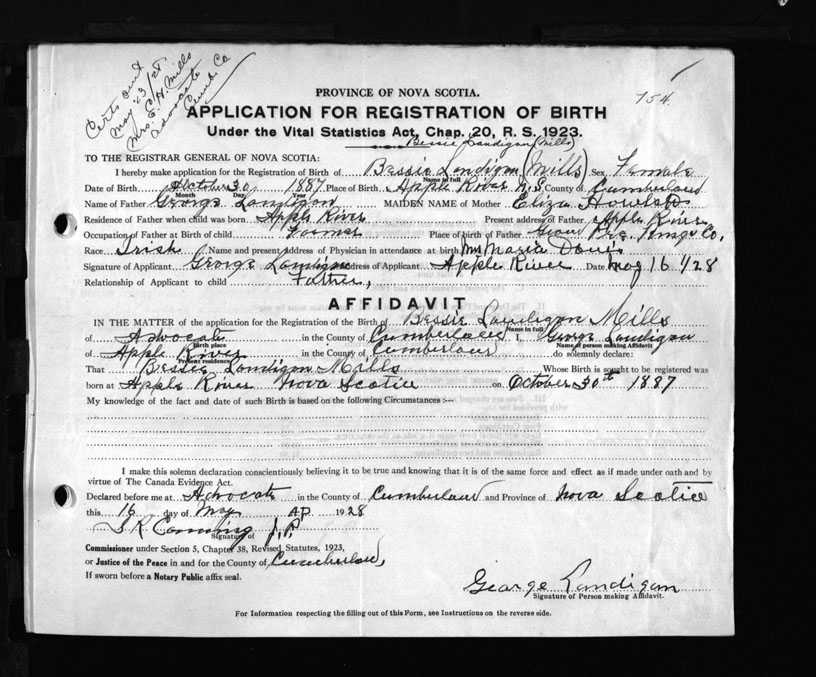 Certs sent
May 23/28
Mrs. E. H. Mills
Advocate
Cumb. Co
154
PROVINCE OF NOVA SCOTIA.
APPLICATION FOR REGISTRATION OF BIRTH
Under the Vital Statistics Act, Chap. 20, R. S. 1923.
Bessie Landigan (Mills)
TO THE REGISTRAR GENERAL OF NOVA SCOTIA:
I hereby make application for the Registration of Birth of Bessie Landigan (Mills) Sex Female
Name in full
Date of Birth October 30 1887 Place of Birth Apple River N.S. County of Cumberland
Month Day Year
Name of Father George Landigan MAIDEN NAME of Mother Eliza
Residence of Father when child was born Apple River Present address of Father Apple River
Occupation of Father at Birth of child Farmer Place of birth of Father Co,
Race Irish Name and present Address of Physician in attendance at birth Mrs Maria Davis
Signature of Applicant George Landigan Address of Applicant Apple River Date May 16 1928
Relationship of Applicant to child Father,
AFFIDAVIT
IN THE MATTER of the application for the Registration of the Birth of Bessie Landigan Mills
Name in full
of Advocate in the County of Cumberland I, George Landigan
Birth place Name of person making Affidavit
of Apple River in the County of Cumberland do solemnly declare:
Present residence
That Bessie Landigan Mills Whose Birth is sought to be registered was
born at Apple River Nova Scotia on October 30th 1887
My knowledge of the fact and date of such Birth is based on the following Circumstances :—
I make this solemn declaration conscientiously believing it to be true and knowing that it is of the same force and effect as if made under oath and by
virtue of The Canada Evidence Act.
Declared before me at Advocate in the County of Cumberland and Province of Nova Scotia
this 16 day of May AD 1928
J.P.
Signature of
Commissioner under Section 5, Chapter 38, Revised Statutes, 1923,
or Justice of the Peace in and for the County of Cumberland,
If sworn before a Notary Public affix seal.
George Landigan
Signature of Person making Affidavit.
For Information respecting the filling out of this Form, see Instructions on the reverse side.